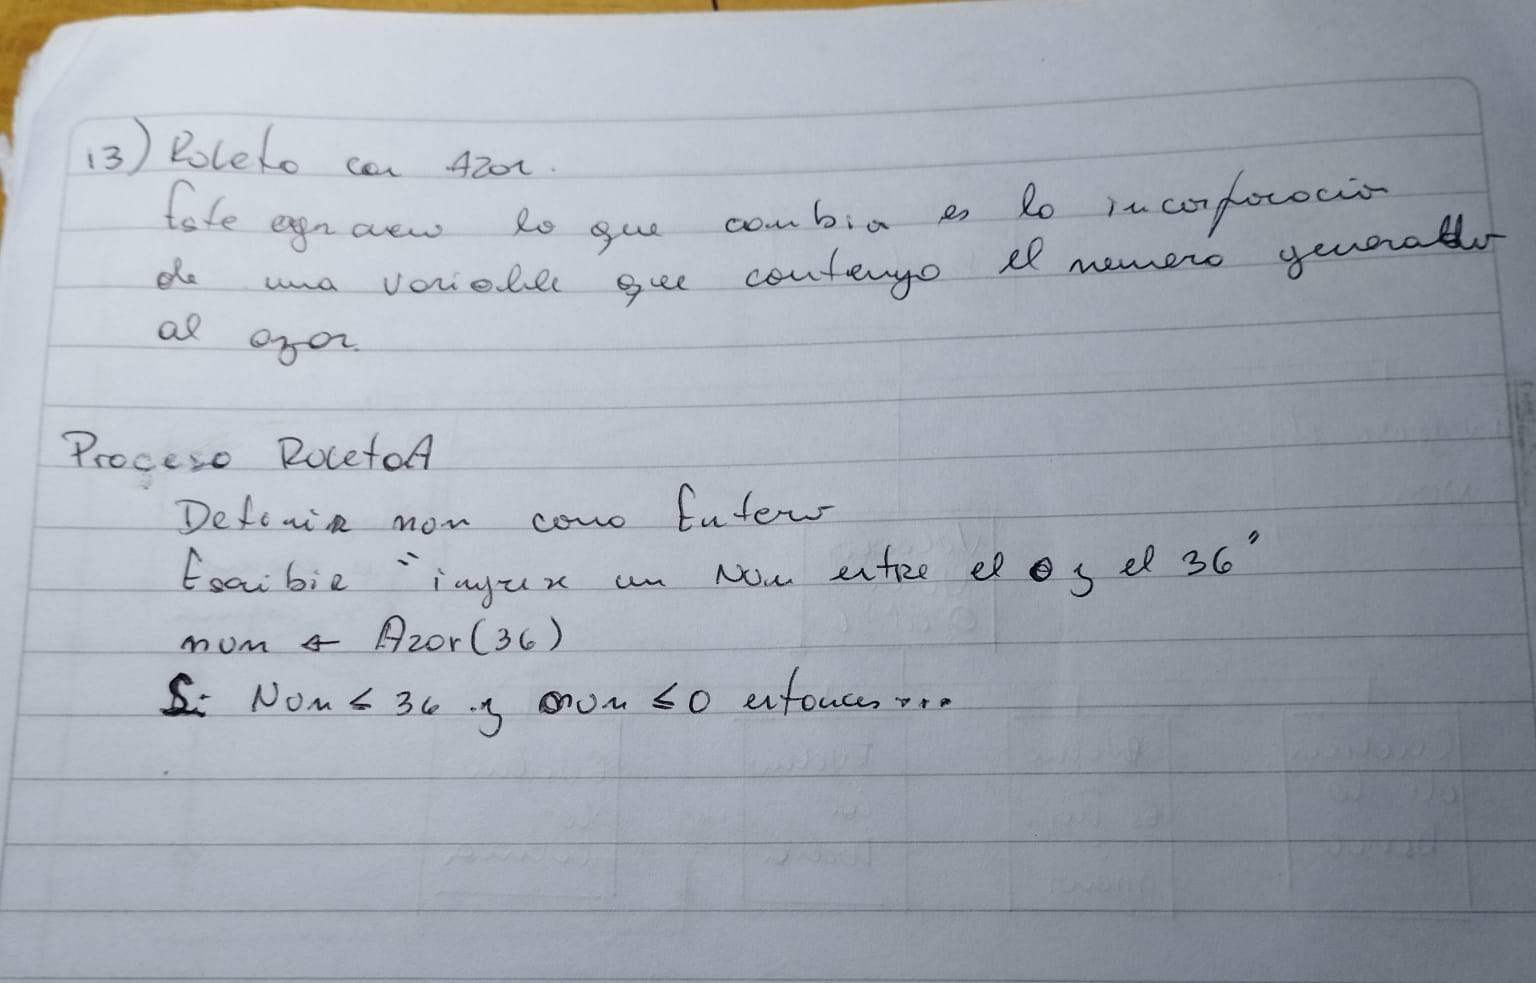 13) Ruleta con Azar.
Este lo que cambia es la incorporación
de una variable que contenga el numero generado
al azar.
Proceso RuletaA
Definir num como Entero
Escribir "ingrese un Num entre el 0 y el 36"
num ← Azar(36)
Si Num ≤ 36 y num ≤ 0 entonces...